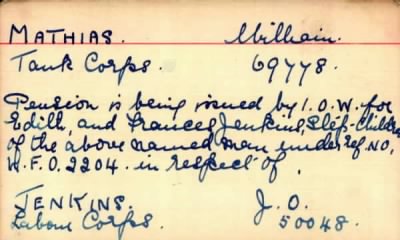 MATHIAS. William.
Tank Corps. 69778.
Pension is being issued by I.O.W. for
Edith, and Frances Jenkins, Step-Children
of the above named man under Ref. NO.
W.F.O. 2204. in respect of,
JENKINS. J. O.
Labour Corps. 50048.